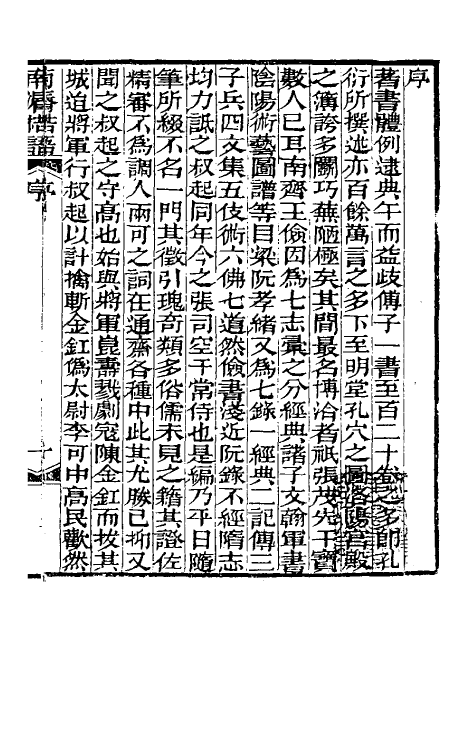 序
著書體例逮典午而益歧傳子一書至百二十卷之多師孔
衍所撰述亦百餘萬言之多下至明堂孔穴之圖洛陽宮殿
之簿誇多鬬巧蕪陋極矣其間最名博洽者祇張茂先干寶
數人已耳南齊王儉因為七志彙之分經典諸子文翰軍書
陰陽術藝圖譜等目梁阮孝緒又為七錄一經典二記傳三
子兵四文集五伎術六佛七道然儉書淺近阮錄不經隋志
均力詆之叔起同年今之張司空干常侍也是編乃平日隨
筆所綴不名一門其徵引瑰奇類多俗儒未見之籍其證佐
精審不為調人兩可之詞在通齋各種中此其尤勝已抑又
聞之叔起之守高也始與將軍崑壽戮劇寇陳金釭而拔其
城迫將軍行叔起以計擒斬金釭偽太尉李可中高民歡然
南漘楛語
序
一